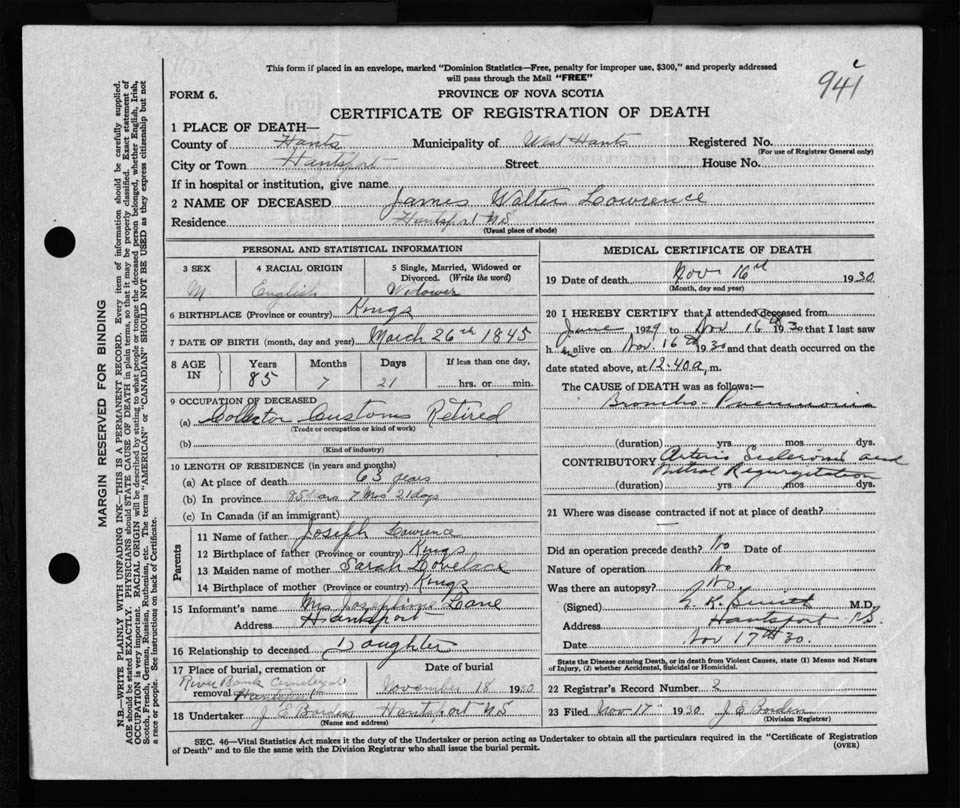 This form if placed in an envelope, marked "Dominion Statistics—Free, penalty for improper use, $300," and properly addressed
will pass through the Mail "FREE"
941
FORM 6.
PROVINCE OF NOVA SCOTIA
CERTIFICATE OF REGISTRATION OF DEATH
1 PLACE OF DEATH—
County of Hants Municipality of West Hants Registered No.
(For use of Registrar General only)
City or Town Hantsport Street House No.
If in hospital or institution, give name
2 NAME OF DECEASED James Walter Lowrence
Residence Hantsport NS
(Usual place of abode)
PERSONAL AND STATISTICAL INFORMATION
3 SEX 4 RACIAL ORIGIN 5 Single, Married, Widowed or
Divorced. (Write the word)
M English Widower
6 BIRTHPLACE (Province or country) Kings
7 DATE OF BIRTH (month, day and year) March 26th 1845
8 AGE IN Years Months Days If less than one day,
85 7 21 hrs. or min.
9 OCCUPATION OF DECEASED
(a) Collector Customs Retired
(Trade or occupation or kind of work)
(b)
(Kind of industry)
10 LENGTH OF RESIDENCE (in years and months)
(a) At place of death 63 years
(b) In province 85 Years 7 Mos 21 days
(c) In Canada (if an immigrant)
Parents
11 Name of father Joseph Lowrence
12 Birthplace of father (Province or country) Kings
13 Maiden name of mother Sarah Lovelace
14 Birthplace of mother (Province or country) Kings
15 Informant's name Mrs Josephine Lane
Address Hantsport
16 Relationship to deceased Daughter
17 Place of burial, cremation or Date of burial
River Bank Cemetery
removal Hantsport November 18 1930
18 Undertaker J E Borden Hantsport NS
(Name and address)
MEDICAL CERTIFICATE OF DEATH
19 Date of death Nov 16th 1930
(Month, day and year)
20 I HEREBY CERTIFY that I attended deceased from
June 1929 to Nov 16th 1930 that I last saw
h im alive on Nov. 16th 1930 and that death occurred on the
date stated above, at 12.40 a, m.
The CAUSE of DEATH was as follows:—
Broncho-Pneumonia
(duration) yrs mos dys.
CONTRIBUTORY Arterio Sclerosis and
Mitral Regurgitation
(duration) yrs mos. dys.
21 Where was disease contracted if not at place of death?
Did an operation precede death? No Date of
Nature of operation No
Was there an autopsy? No
(Signed) K. Smith M.D.
Address Hantsport N.S.
Date Nov 17th 30.
State the Disease causing Death, or in death from Violent Causes, state (1) Means and Nature
of Injury, (2) whether Accidental, Suicidal or Homicidal.
22 Registrar's Record Number 2
23 Filed Nov-17- 1930 J E Borden
(Division Registrar)
SEC. 46—Vital Statistics Act makes it the duty of the Undertaker or person acting as Undertaker to obtain all the particulars required in the "Certificate of Registration
of Death" and to file the same with the Division Registrar who shall issue the burial permit.
(OVER)
MARGIN RESERVED FOR BINDING
N.B.—WRITE PLAINLY WITH UNFADING INK—THIS IS A PERMANENT RECORD. Every item of information should be carefully supplied.
AGE should be stated EXACTLY. PHYSICIANS should STATE CAUSE OF DEATH in plain terms, so that it may be properly classified. Exact statement of
OCCUPATION is very important. RACIAL ORIGIN will be described by stating to what people or tongue the deceased person belonged, whether English, Irish,
Scotch, French, German, Russian, Ruthenian, etc. The terms "AMERICAN" or "CANADIAN" SHOULD NOT BE USED as they express citizenship but not
a race or people. See instructions on back of Certificate.